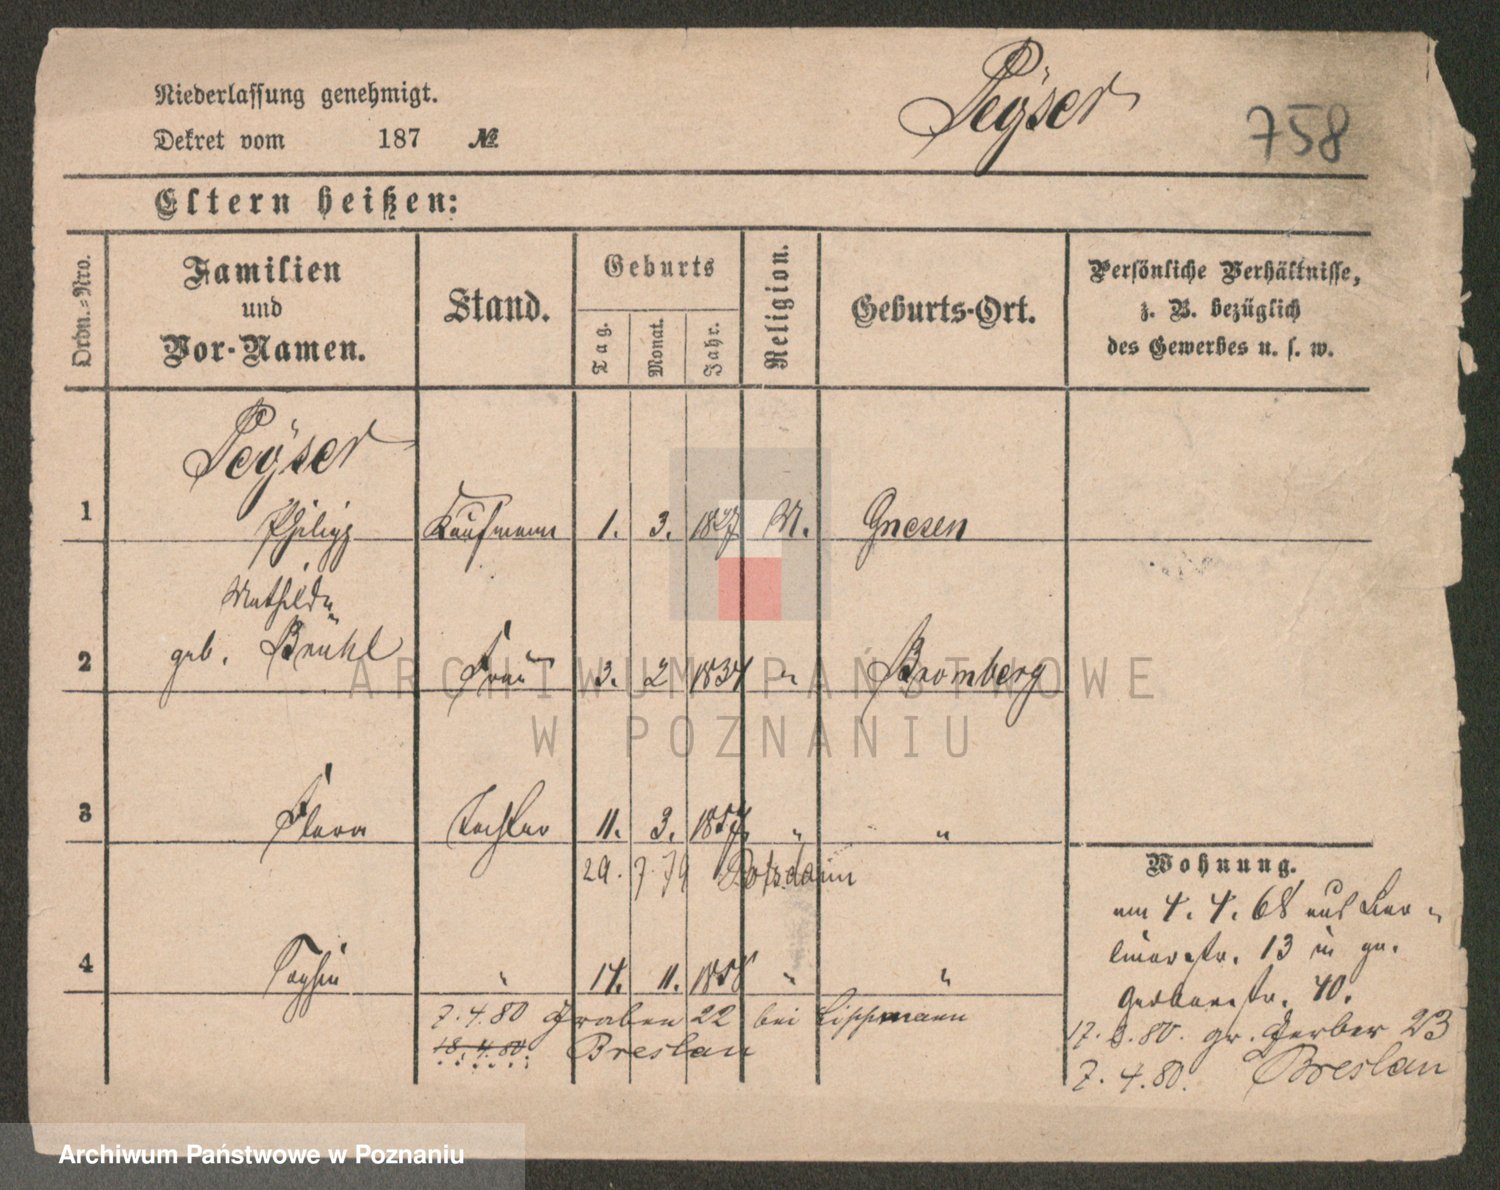 Niederlassung genehmigt.
Peÿser
758
Dekret vom 187 №
Eltern heißen:
Ordn.=Nro.
Familien
und
Vor-Namen.
Stand.
Geburts
Tag.
Monat.
Jahr.
Religion.
Geburts-Ort.
Persönliche Verhältnisse,
z. B. bezüglich
des Gewerbes u. s. w.
Peÿser
1 Philipp Kaufmann 1. 3. 1827 M. Gnesen
Mathilde
2 geb. Brühl Frau 3. 2 1834 " Bromberg
3 Flora Tochter 11. 3. 1857. " "
29. 7. 79 Potsdam
4 Sophie " 14. 11. 1858 " "
7. 4. 80 Graben 22 bei Lippmann
18. 4. 80. Breslau
Wohnung.
am 4. 4. 68 aus Ber-
linerstr. 13 in gr.
Gerberstr. 40.
17. 3. 80. gr. Gerber 23
7. 4. 80. Breslau
ARCHIWUM PAŃSTWOWE
W POZNANIU
Archiwum Państwowe w Poznaniu